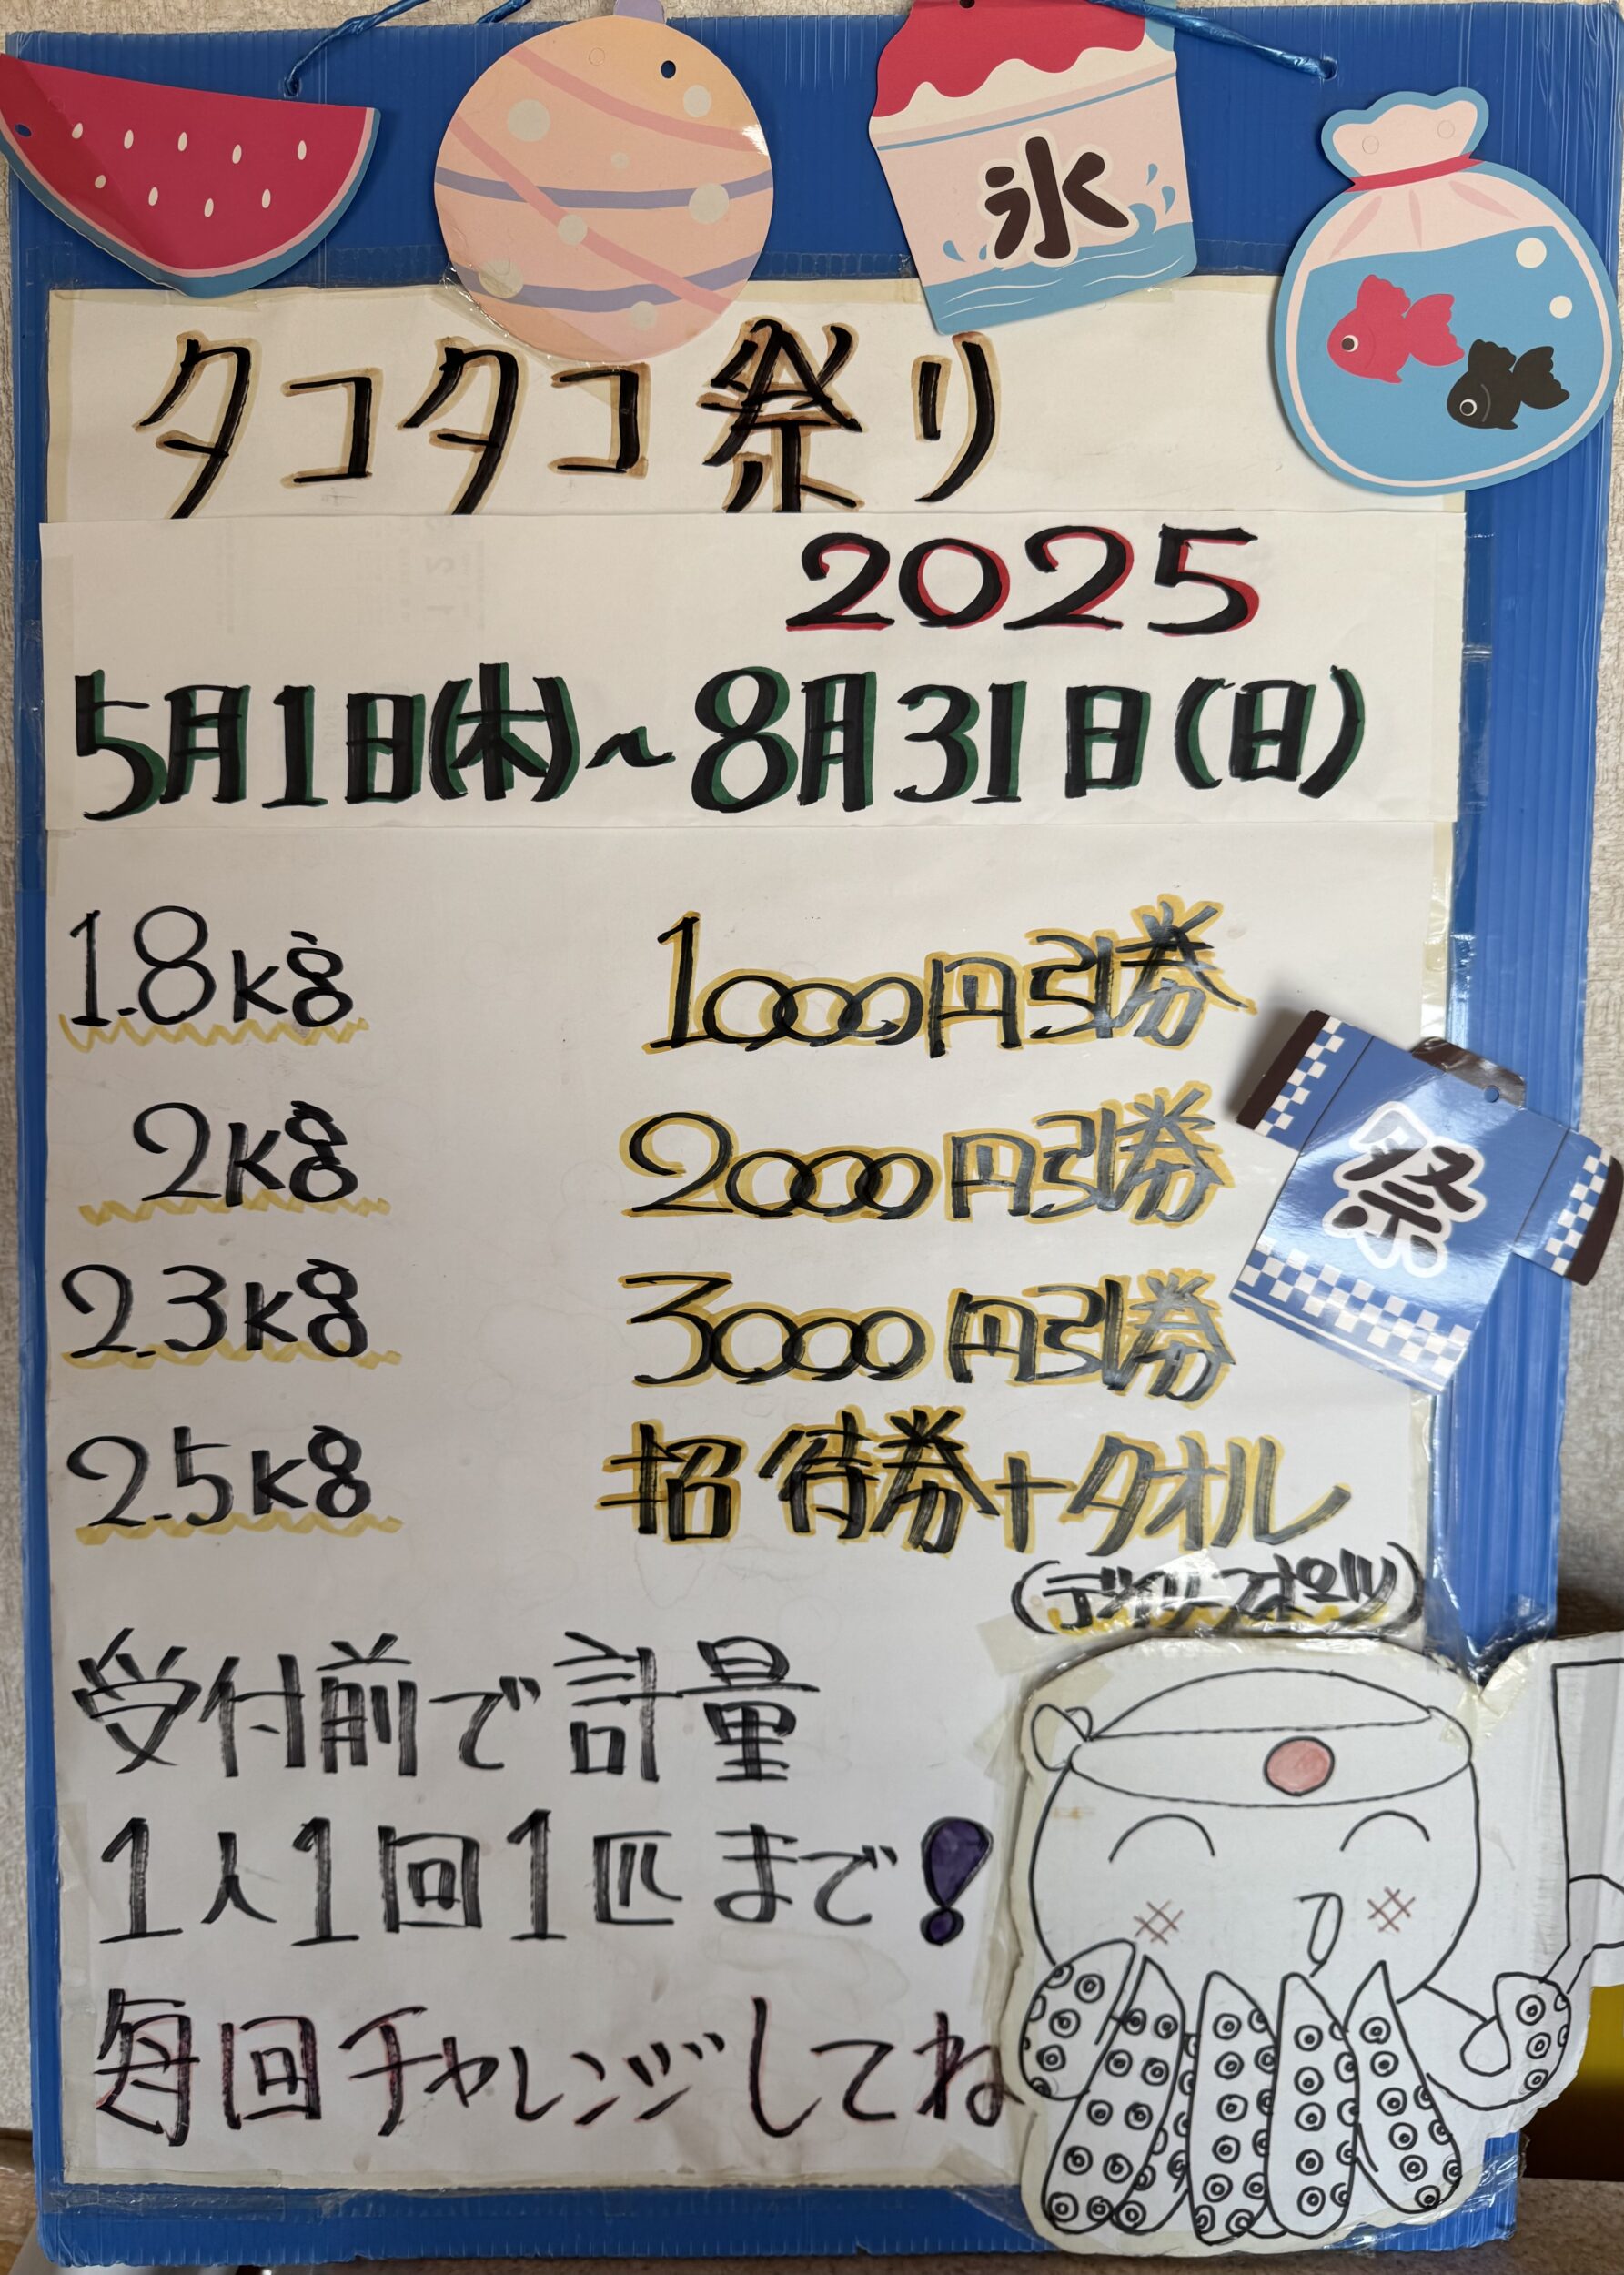 氷
タコタコ祭り
2025
5月1日(木)~8月31日(日)
1.8kg 1000円引券
2kg 2000円引券
2.3kg 3000円引券
祭
2.5kg 招待券+タオル
受付前で計量
1人1回1匹まで!
毎回チャレンジしてね